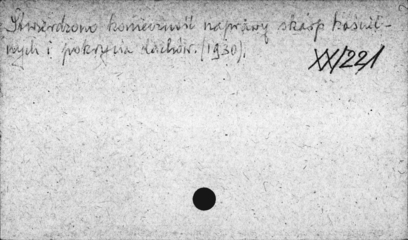 Stwierdzono konieczność naprawy skarp kościel-
nych i pokrycia dachów. (1930).
XX/221